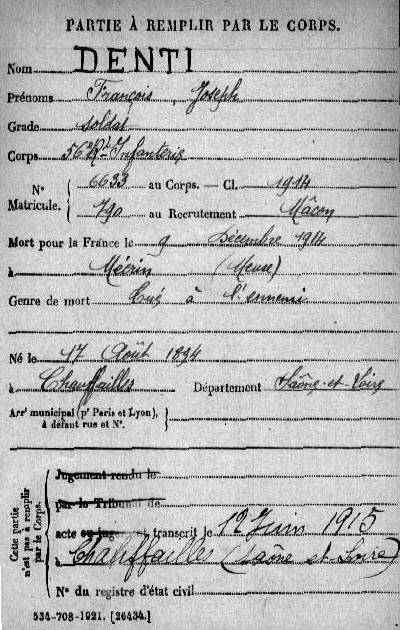 PARTIE À REMPLIR PAR LE CORPS.
Nom DENTI
Prénoms François, Joseph
Grade soldat
Corps 56e Rt Infanterie
N° Matricule. { 6633 au Corps. — Cl. 1914
790 au Recrutement Mâcon
Mort pour la France le 9 Décembre 1914
à Mécrin (Meuse)
Genre de mort Tué à l'ennemi
Né le 17 Août 1894
à Chauffailles Département Saône-et-Loire
Arrt municipal (pr Paris et Lyon), }
à défaut rue et N°.
Cette partie n'est pas à remplir par le Corps.
Jugement rendu le
par le Tribunal de
acte ou jugement transcrit le 12 Juin 1915
à Chauffailles (Saône et Loire)
N° du registre d'état civil
534-708-1921. [26434.]